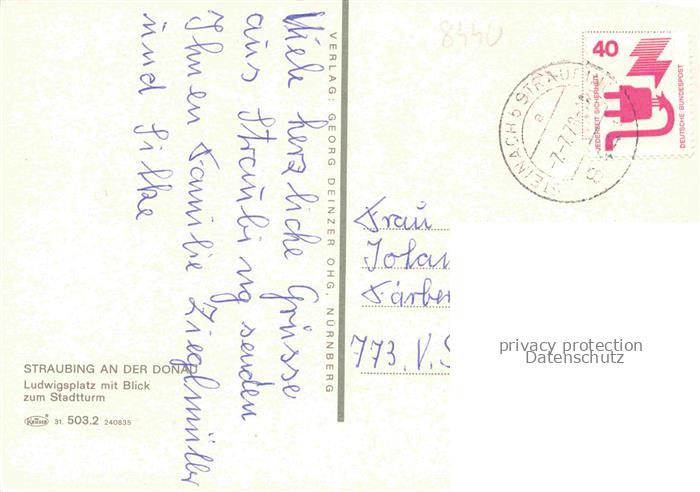 Viele herzliche Grüsse
aus Straubing senden
Ihnen Familie Zieglmüller
und Silke
VERLAG: GEORG DEINZER OHG, NÜRNBERG
8440
40
JEDERZEIT SICHERHEIT
DEUTSCHE BUNDESPOST
STEINACH b STRAUBING
a
-7.-7.7
Frau
Färber
773. V. S
privacy protection
Datenschutz
STRAUBING AN DER DONAU
Ludwigsplatz mit Blick
zum Stadtturm
Krüger 31. 503.2 240835